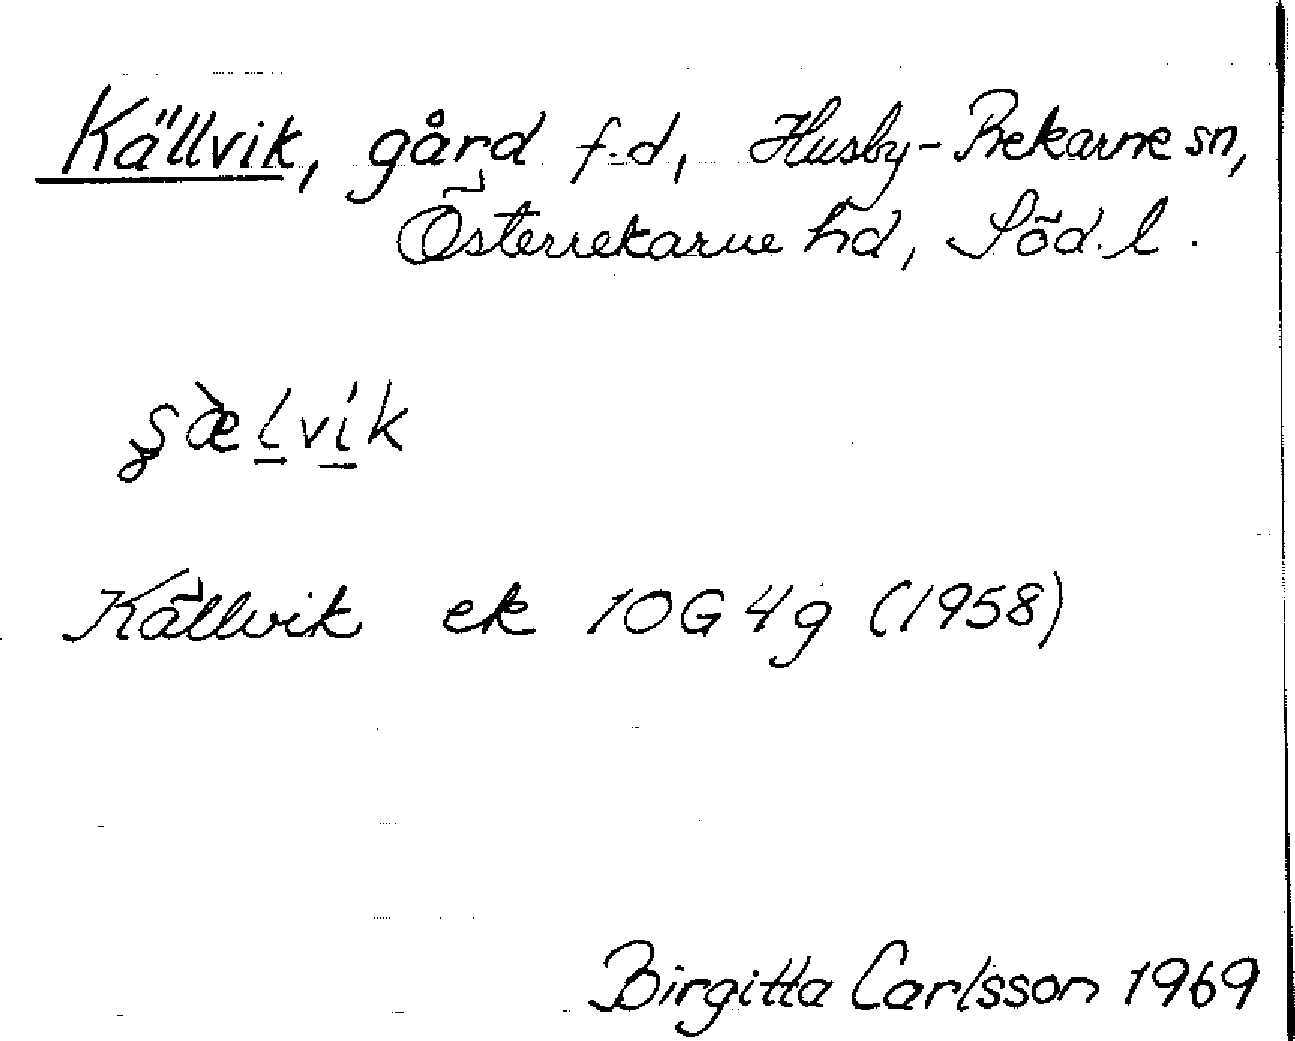 Källvik, gård f.d, Husby-Rekarne sn,
Österrekarne hd, Söd. l.
Källvik ek 10G 4g (1958)
Birgitta Carlsson 1969